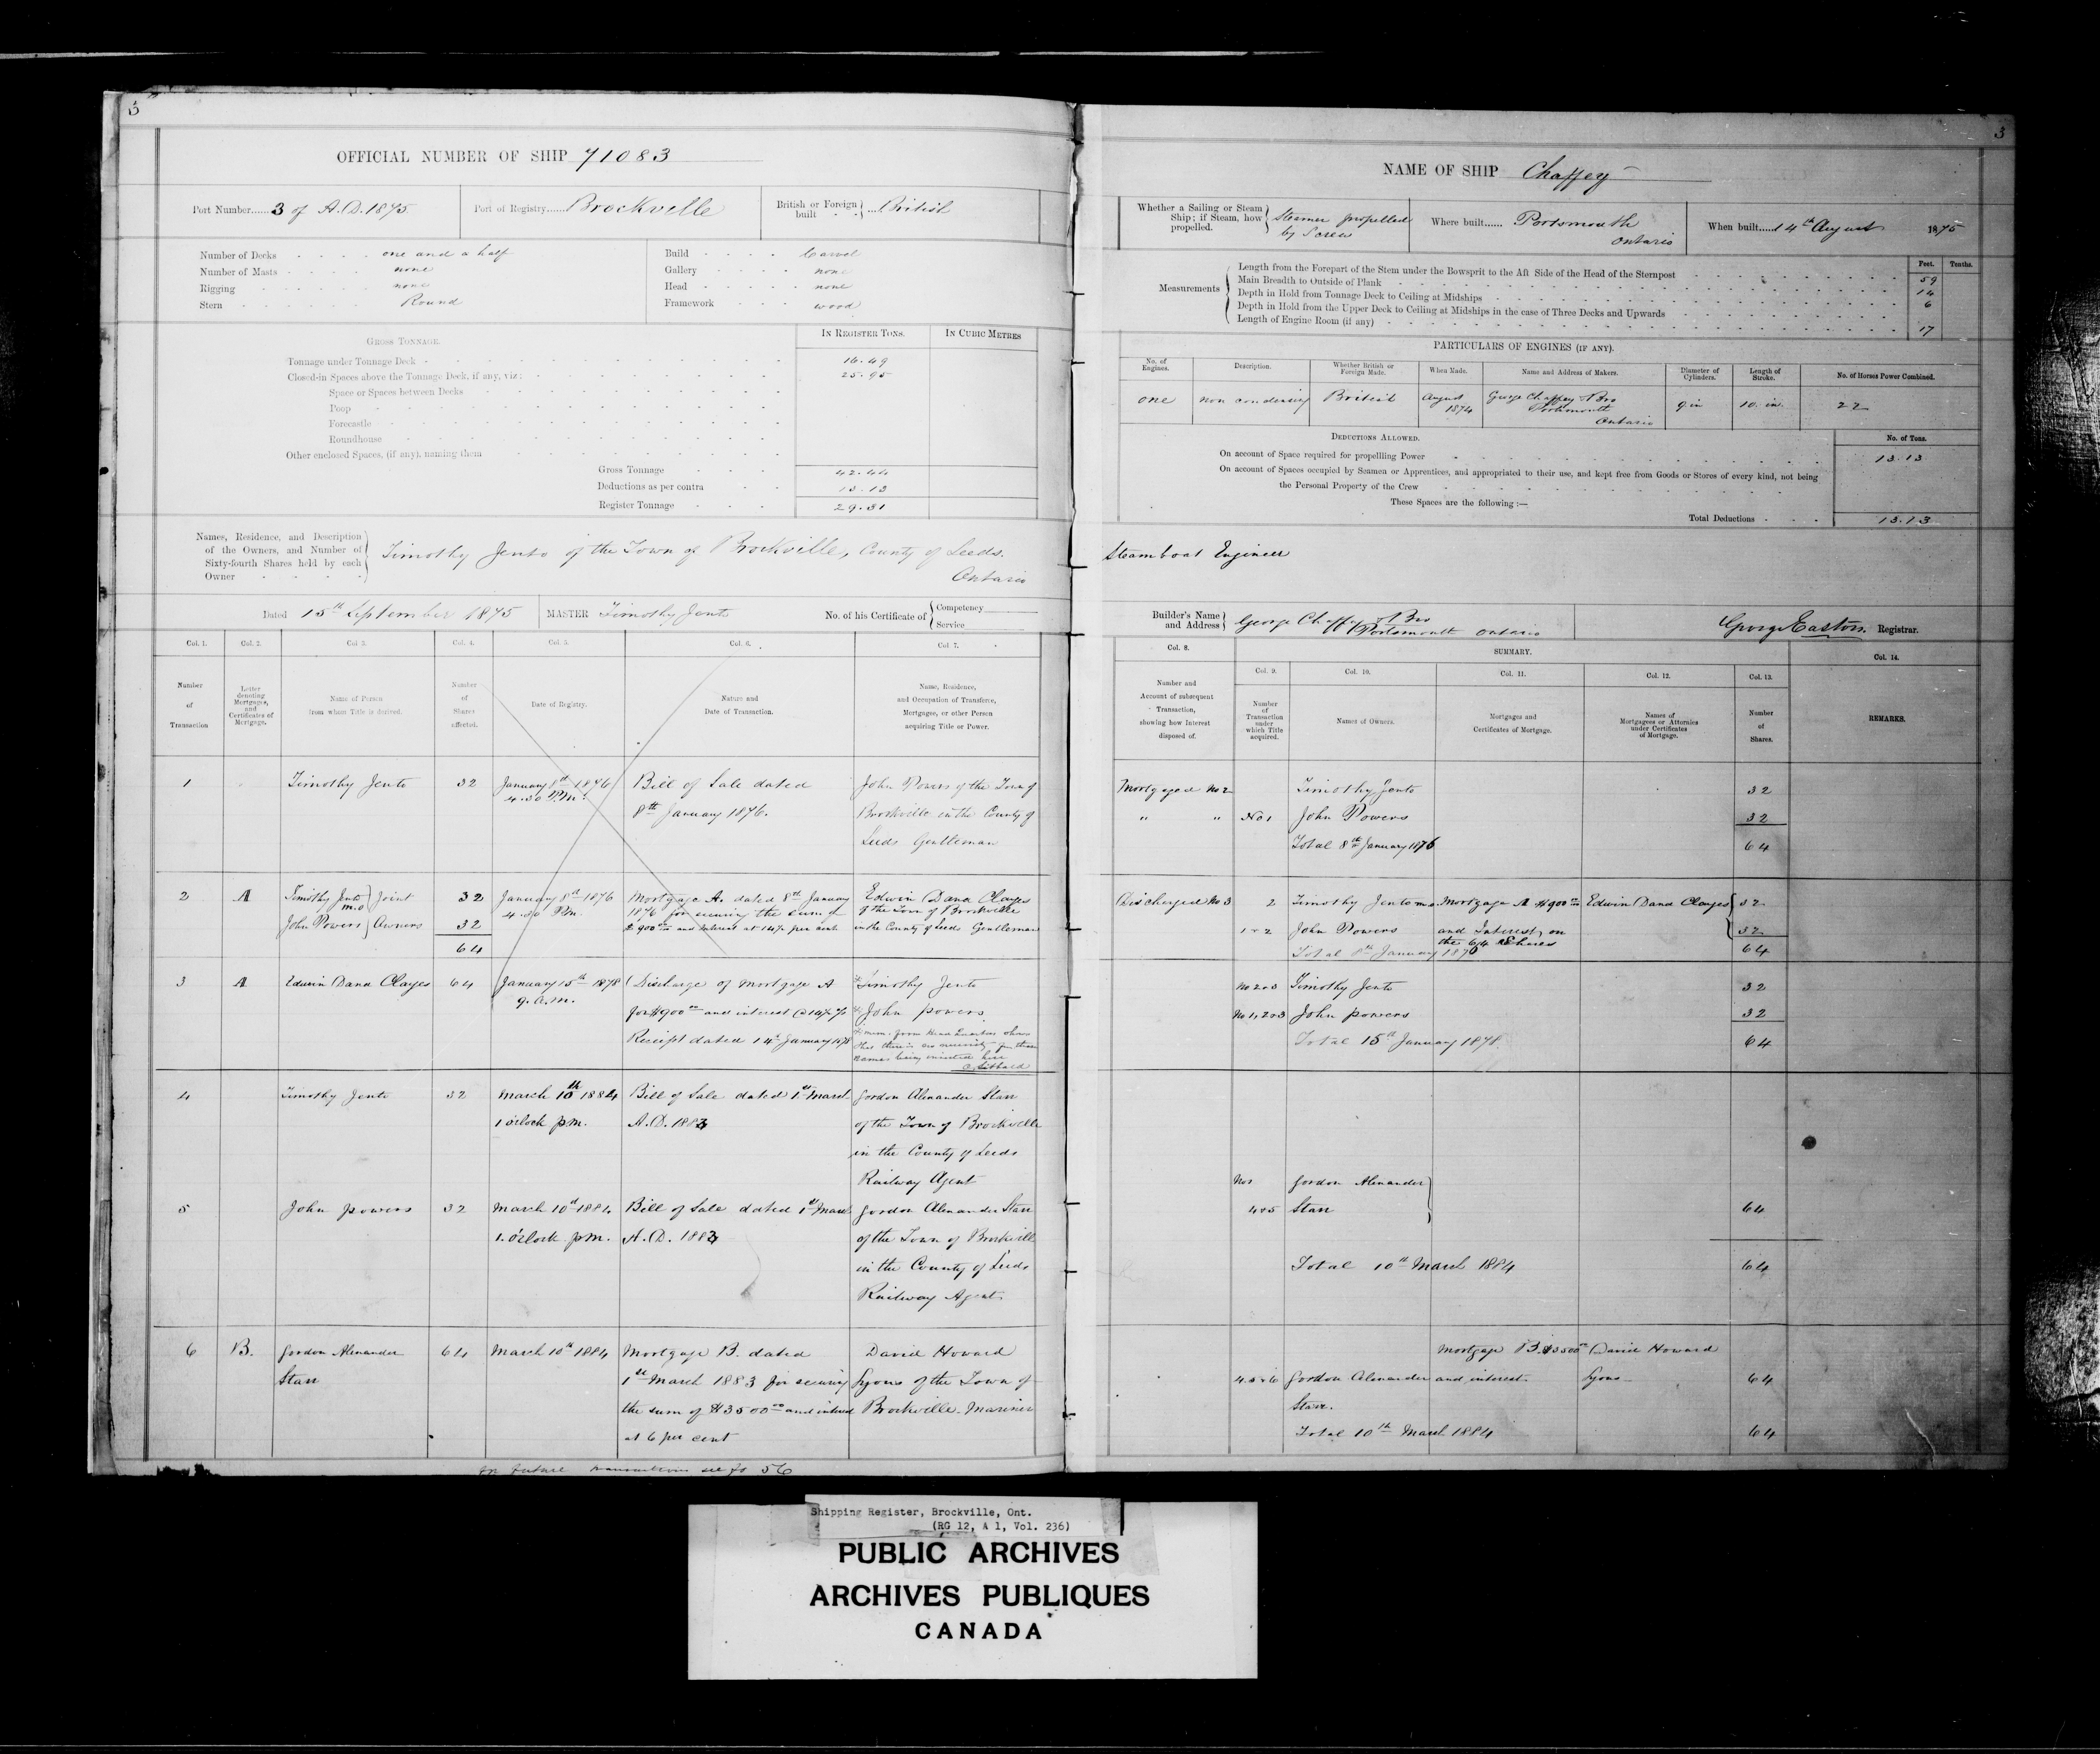 3
OFFICIAL NUMBER OF SHIP 71083
Port Number......3 of A.D. 1875
Port of Registry......Brockville
British or Foreign built } ...British
Number of Decks - - - - one and a half
Number of Masts - - - - none
Rigging - - - - none
Stern - - - - Round
Build - - - - Carvel
Gallery - - - - none
Head - - - - none
Framework - - - - wood
GROSS TONNAGE.
IN REGISTER TONS.
IN CUBIC METRES
Tonnage under Tonnage Deck - 16.49
Closed-in Spaces above the Tonnage Deck, if any, viz: - 25.95
Space or Spaces between Decks
Poop
Forecastle
Roundhouse
Other enclosed Spaces, (if any), naming them
Gross Tonnage - - - 42.44
Deductions as per contra - - 13.13
Register Tonnage - - - 29.31
Names, Residence, and Description
of the Owners, and Number of
Sixty-fourth Shares held by each
Owner
Timothy Jento of the Town of Brockville, County of Leeds.
Ontario
Dated 15th September 1875
MASTER Timothy Jento
No. of his Certificate of { Competency
Service
Col. 1.
Col. 2.
Col. 3.
Col. 4.
Col. 5.
Col. 6.
Col. 7.
Number of Transaction
Letter denoting Mortgages, and Certificates of Mortgage.
Name of Person from whom Title is derived.
Number of Shares affected.
Date of Registry.
Nature and Date of Transaction.
Name, Residence, and Occupation of Transferee, Mortgagee, or other Person acquiring Title or Power.
1
Timothy Jento
32
January 8th 1876
4.30 P.m.
Bill of Sale dated
8th January 1876.
John Powers of the Town of
Brockville in the County of
Leeds Gentleman
2
A
Timothy Jento m.o } Joint
John Powers } Owners
32
32
64
January 8th 1876
4.30 P.m.
Mortgage A. dated 8th January
1876 for securing the sum of
$900.00 and Interest at 14% per cent
Edwin Dana Clayes
of the Town of Brockville
in the County of Leeds Gentleman
3
A
Edwin Dana Clayes
64
January 15th 1878
9. a.m.
Discharge of Mortgage A
for $900.00 and interest @ 14%
Receipt dated 14th January 1878
Timothy Jento
John Powers
4
Timothy Jento
32
March 10th 1884
1 o'clock p.m.
Bill of Sale dated 1st March
A.D. 1883
Gordon Alexander Starr
of the Town of Brockville
in the County of Leeds
Railway Agent
5
John Powers
32
March 10th 1884
1. o'clock p.m.
Bill of Sale dated 1st March
A.D. 1883
Gordon Alexander Starr
of the Town of Brockville
in the County of Leeds
Railway Agent.
6
B.
Gordon Alexander
Starr
64
March 10th 1884
Mortgage B. dated
1st March 1883 for securing
the sum of $3500.00 and interest
at 6 per cent
David Howard
Lyons of the Town of
Brockville. Mariner
for future transactions see fo 56
3
NAME OF SHIP Chaffey
Whether a Sailing or Steam
Ship; if Steam, how
propelled.
Steamer propelled
by Screw
Where built...... Portsmouth
Ontario
When built.....14th August 1875
Measurements
Feet. Tenths.
Length from the Forepart of the Stem under the Bowsprit to the Aft Side of the Head of the Sternpost 59
Main Breadth to Outside of Plank 14
Depth in Hold from Tonnage Deck to Ceiling at Midships 6
Depth in Hold from the Upper Deck to Ceiling at Midships in the case of Three Decks and Upwards
Length of Engine Room (if any) 17
PARTICULARS OF ENGINES (IF ANY).
No. of Engines.
Description.
Whether British or Foreign Made.
When Made.
Name and Address of Makers.
Diameter of Cylinders.
Length of Stroke.
No. of Horses Power Combined.
one
non condensing
British
August
1874
George Chaffey & Bro
Portsmouth
Ontario
9 in
10. in.
22
DEDUCTIONS ALLOWED.
No. of Tons.
On account of Space required for propelling Power 13.13
On account of Spaces occupied by Seamen or Apprentices, and appropriated to their use, and kept free from Goods or Stores of every kind, not being
the Personal Property of the Crew
These Spaces are the following:—
Total Deductions 13.13
Steamboat Engineer
Builder's Name and Address } George Chaffey & Bro
Portsmouth Ontario
George Easton. Registrar.
Col. 8.
SUMMARY.
Col. 14.
Col. 9.
Col. 10.
Col. 11.
Col. 12.
Col. 13.
Number and Account of subsequent Transaction, showing how Interest disposed of.
Number of Transaction under which Title acquired.
Names of Owners.
Mortgages and Certificates of Mortgage.
Names of Mortgagees or Attornies under Certificates of Mortgage.
Number of Shares.
REMARKS.
Mortgaged No 2
Timothy Jento
32
" "
No 1
John Powers
32
Total 8th January 1876
64
Discharged No 3
2
Timothy Jento m.o
Mortgage A $900.00
Edwin Dana Clayes
32
1 & 2
John Powers
and Interest, on
the 64 Shares
32
Total 8th January 1876
64
No 2 & 3
Timothy Jento
32
No 1, 2 & 3
John Powers
32
Total 15th January 1878.
64
Nos
Gordon Alexander
4 & 5
Starr
64
Total 10th March 1884
64
Mortgage B. $3500.00
David Howard
4.5 & 6
Gordon Alexander
and interest
Lyons
64
Starr.
Total 10th March 1884
64
Shipping Register, Brockville, Ont.
(RG 12, A 1, Vol. 236)
PUBLIC ARCHIVES
ARCHIVES PUBLIQUES
CANADA